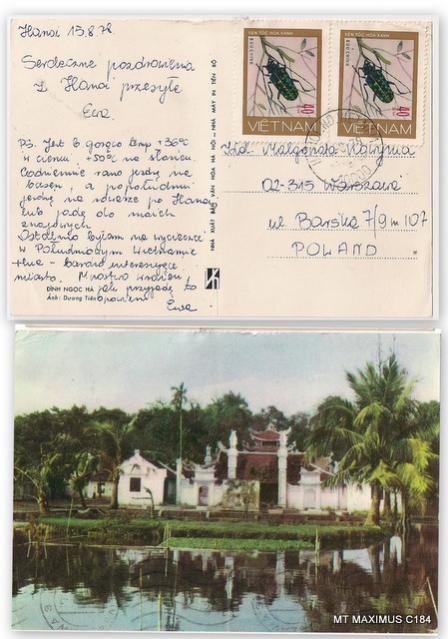 Hanoi 15.8.78.
Serdeczne pozdrowienia
z Hanoi przesyła
Ewa
PS. Jest b. gorąco temp +36°
w cieniu, +50° na słońcu.
Codziennie rano jeżdżę na
basen, a popołudniu
jeżdżę na rowerze po Hanoi
lub jadę do moich
znajomych
Ostatnio byłam na wycieczce
w Południowym Wietnamie
bardzo interesujące
miasto.
jak przyjadę to
opowiem Ewa
ĐÌNH NGỌC HÀ
Ảnh: Dương Tiến
NHÀ XUẤT BẢN VĂN HÓA HÀ NỘI - NHÀ MÁY IN TIẾN BỘ
XÉN TÓC HOA XANH
BƯU CHÍNH
40
VIETNAM
XÉN TÓC HOA XANH
BƯU CHÍNH
40
VIETNAM
Małgorzata
02-315 Warszawa
ul Barska 7/9 m 107
POLAND
MT MAXIMUS C184